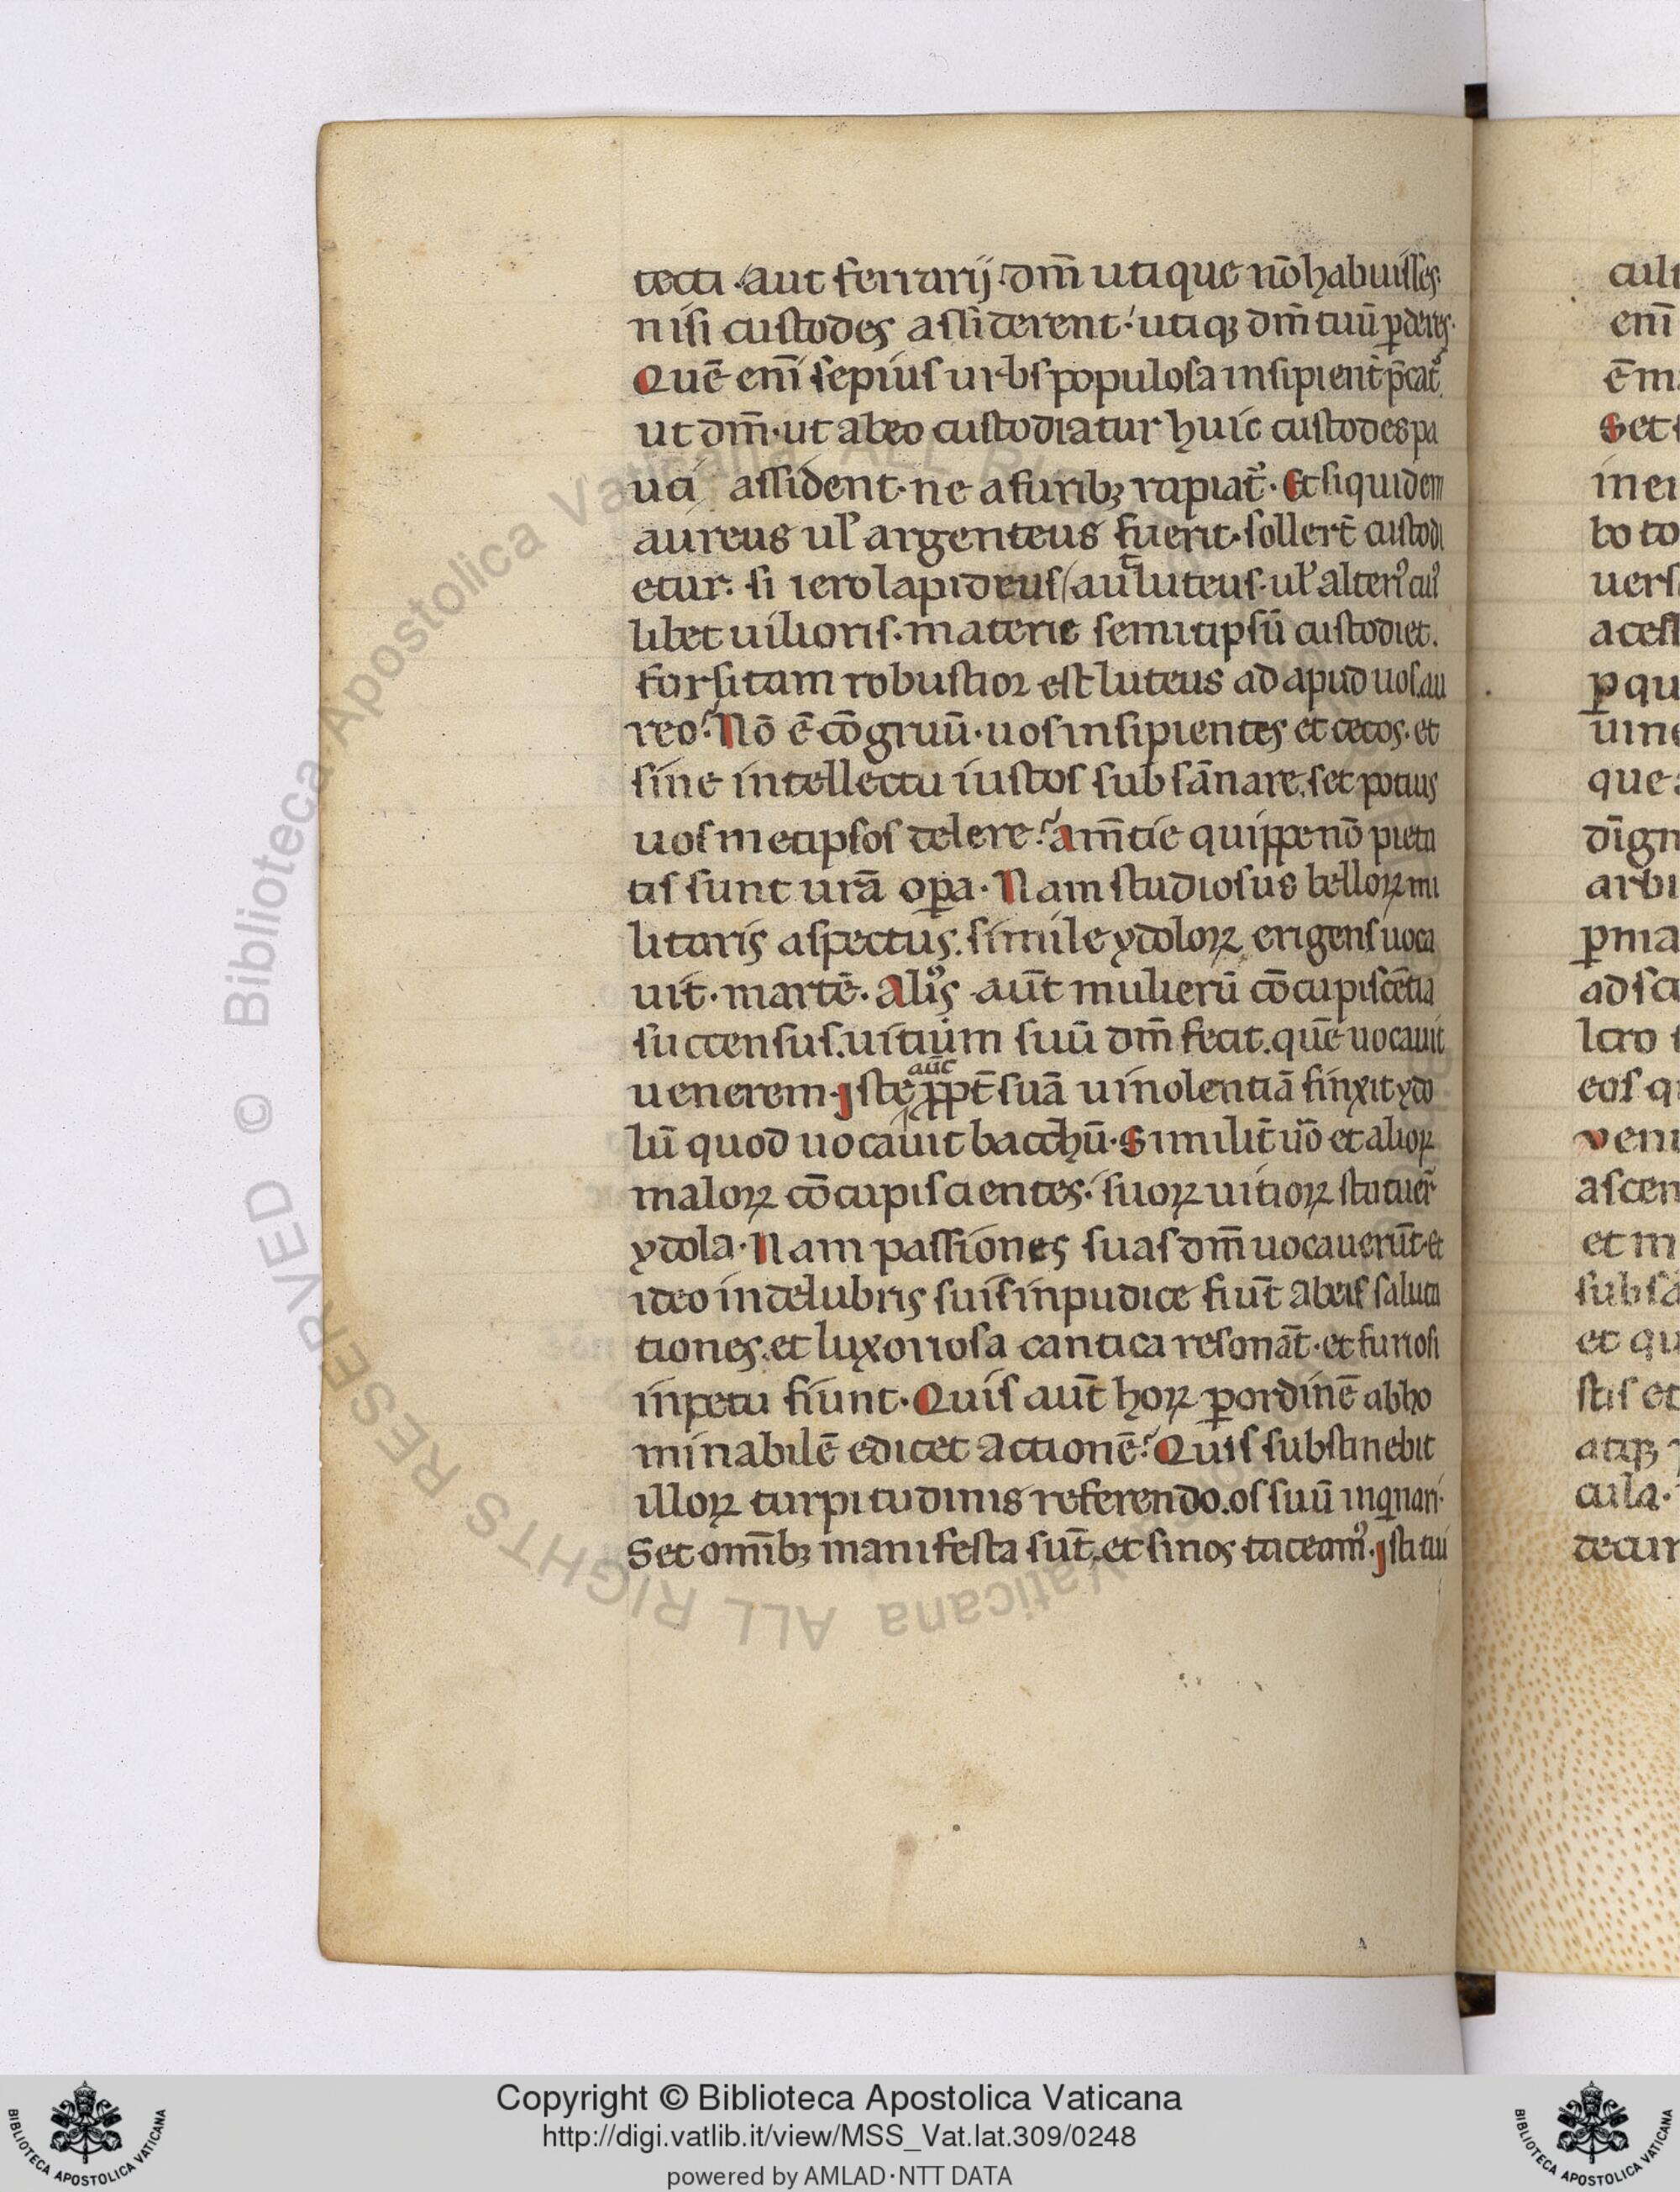 tecti. aut ferrarij. dm̄ utique nō habuisses.
nisi custodes assiderent. utiqꝫ dm̄ tuū ꝑderes.
Quē eni̅ sepius urbs populosa insipient̄ p̄cat᷑.
ut dm̄. ut ab eo custodiatur huic custodes pa
uci assident. ne a furibꝫ rapiat᷑. Et siquidem
aureus ul̕ argenteus fuerit. sollert̄ custodi
etur. si iero lapideus aut luteus. ul̕ alteri᷒ cui᷒
libet uilioris. materie semitipsū custodiet.
forsitam robustior est luteus ad apud uos. au
reo. Nō ē cōgruū. uos insipientes et cecos. et
sine intellectu iustos subsānare. set potius
uosmetipsos telere. am̄tie quippe nō pieta
tis sunt urā oꝑa. Nam studiosus belloꝝ mi
litaris aspectus. simile ydoloꝝ erigens uoca
uit. martē. Ali᷒s aut̄ mulierū cōcupiscētia
succensus. uitium suū dm̄ fecit. quē uocauit
uenerem. Iste aut̄ ꝓpt̄ suā uinolentiā finxit ydo
lū quod uocauit bacchū. Similit̄ uō et alioꝝ
maloꝝ cōcupiscientes. suoꝝ uitioꝝ statuer̄
ydola. Nam passiones suas dm̄ uocauerūt. et
ideo in delubris suis inpudice fiūt ab eis saluta
tiones. et luxoriosa cantica resonāt. et furiosi
inpetu fiunt. Quis aut̄ hoꝝ ꝑ ordinē abho
minabilē edicet actionē. Quis substinebit
illoꝝ turpitudinis referendo. os suū inqnari.
Set omībꝫ manifesta sūt. et si nos taceam᷒. isti tui
cul
enī
ēm
Set
in ei
bo to
uers
acess
ꝑ qu
uine
que
dīgn
arbi
ꝑma
ad sc
lcro
eos q
veni
ascen
et m
subsa
et qu
stis et
atiqꝫ
cula.
tecur
© Biblioteca Apostolica Vaticana ALL RIGHTS RESERVED
Copyright © Biblioteca Apostolica Vaticana
http://digi.vatlib.it/view/MSS_Vat.lat.309/0248
powered by AMLAD·NTT DATA
BIBLIOTECA APOSTOLICA VATICANA
BIBLIOTECA APOSTOLICA VATICANA